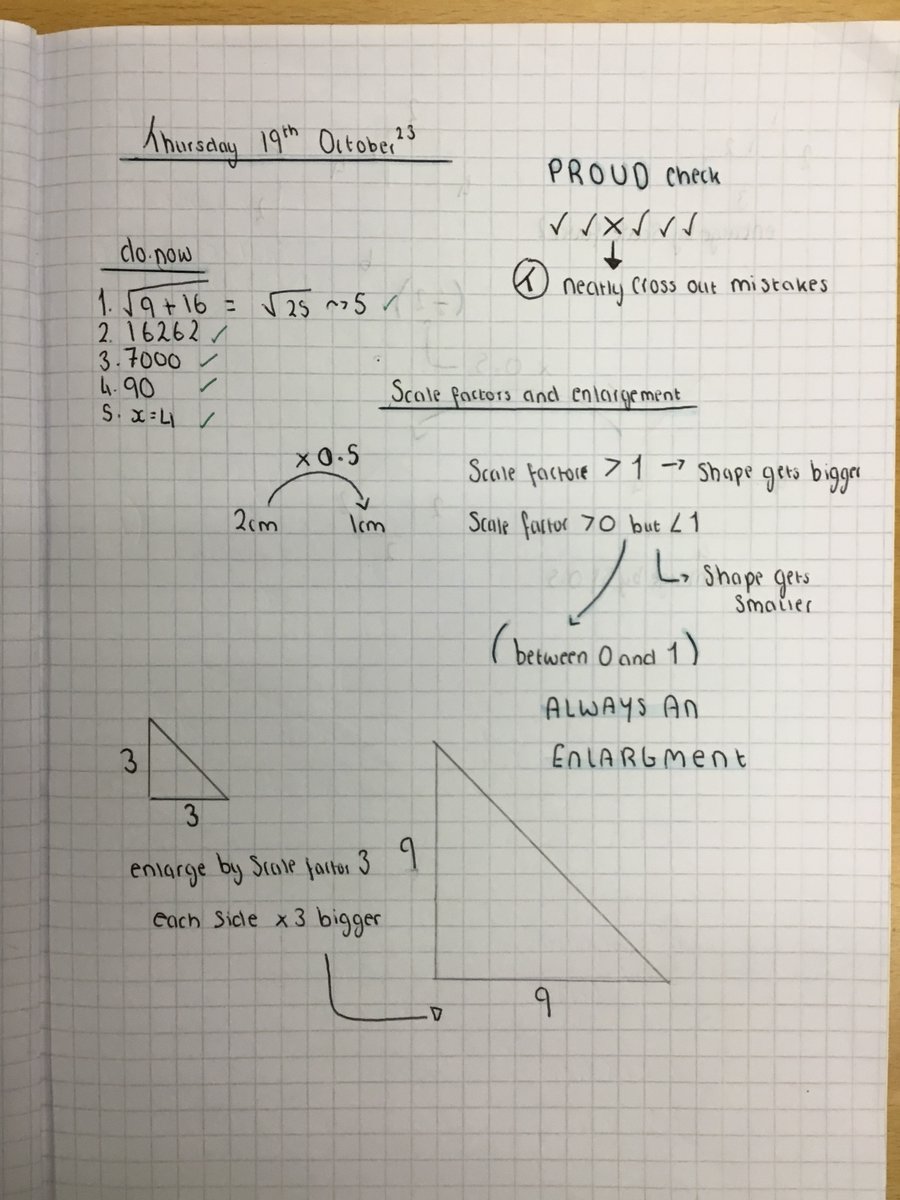 Thursday 19th October 23
PROUD check
✓ ✓ X ✓ ✓ ✓
neatly cross out mistakes
do now
1. √9 + 16 = √25 ~> 5 ✓
2. 16262 ✓
3. 7000 ✓
4. 90 ✓
5. x = 4 ✓
Scale factors and enlargement
x 0.5
2cm 1cm
Scale factore > 1 → Shape gets bigger
Scale factor > 0 but < 1
Shape gets
smaller
(between 0 and 1)
ALWAYS An
EnLARGMEnt
3
3
enlarge by scale factor 3
each side x 3 bigger
9
9